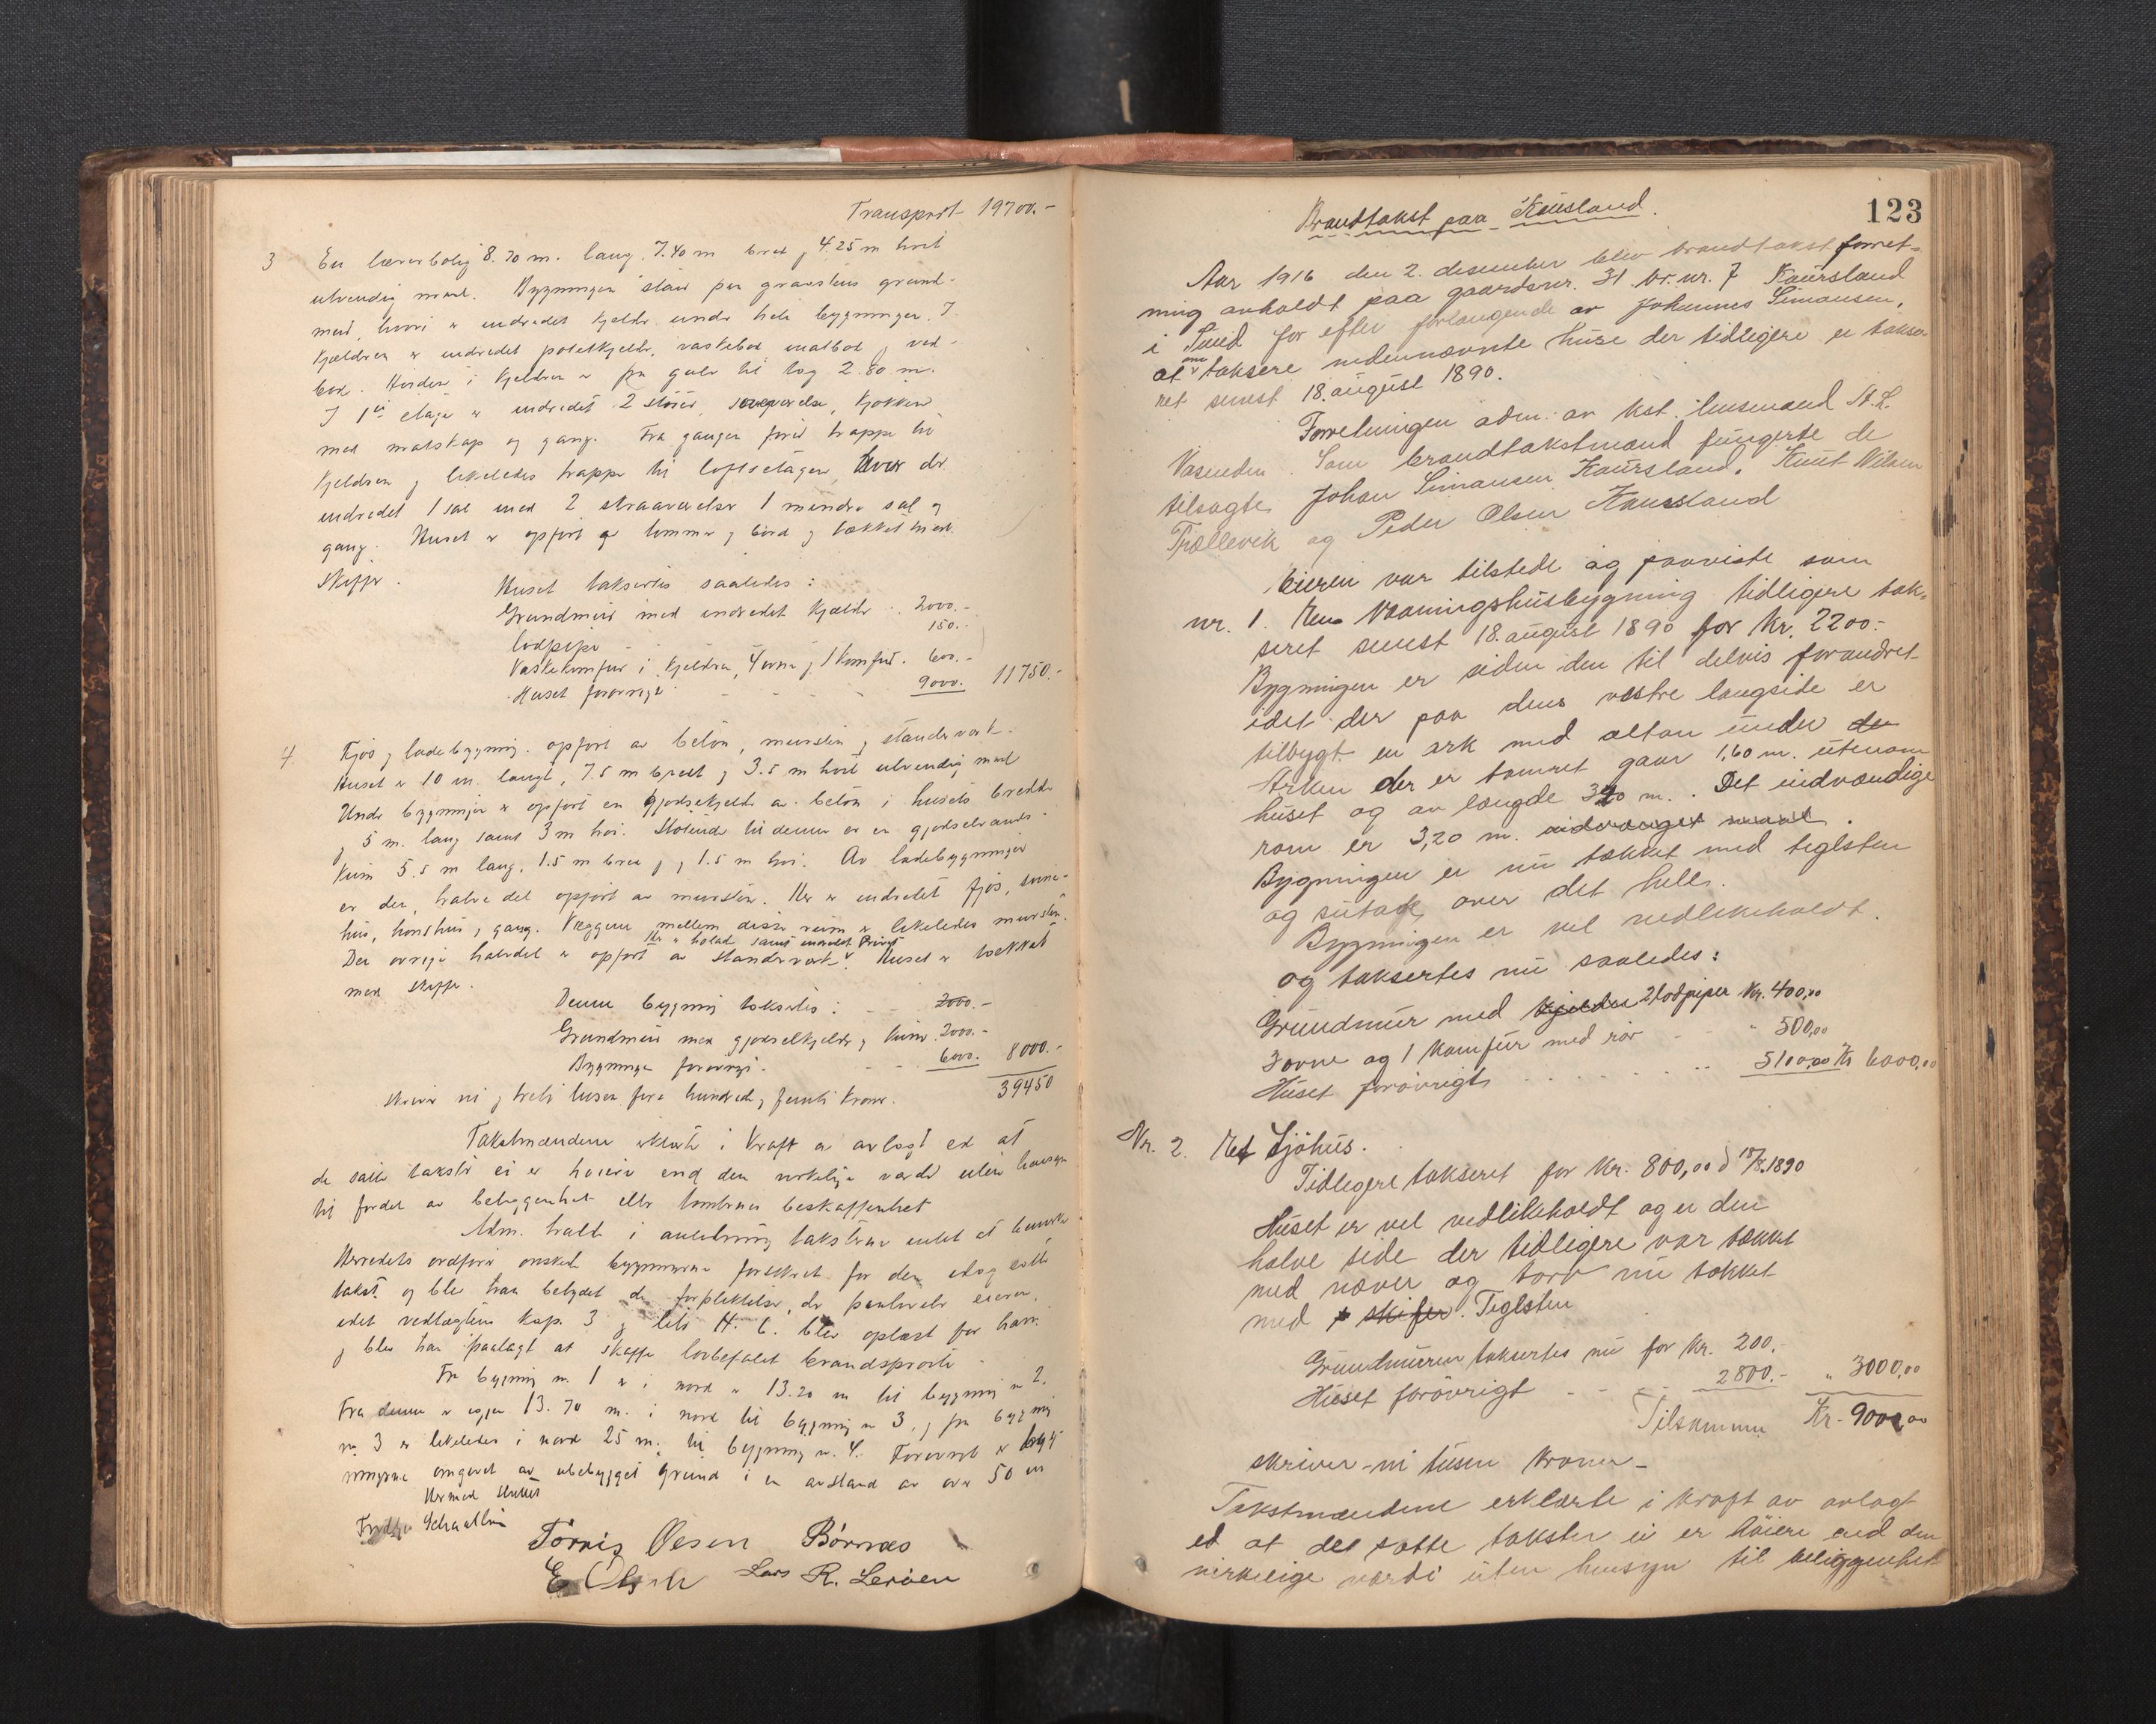 Transport 19700.-
3 En lærerbolig 8.70 m. lang, 7.40 m bred og 4.25 m høit
utvendig maal. Bygningen staar paa graastens grund-
mur, hvori er indredet kjelder under hele bygningen. I
kjælderen er indredet potetkjelder, vaskebod matbod og ved-
bod. Høiden i kjelderen er fra gulv til tag 2.80 m.
I 1ste etage er indredet 2 stuer, soveværelse, kjøkken
med matskap og gang. Fra gangen fører trappe til
kjelderen og likeledes trappe til loftsetagen, hvor der
indredet 1 sal med 2 straaværelser 1 mindre sal og
gang. Huset er opført av tømmer og bord og tækket med
skiffer.
Huset takseres saaledes:
Grundmur med indredet kjælder . 2000.-
lodpipe - 150.-
Vaskekomfur i kjelderen, 4 ovne og 1 komfur. 600.-
Huset forøvrigt - - - - 9000.- 11750.-
4. Fjøs og ladebygning. opført av beton, mursten og standerverk.
Huset er 10 m. langt, 7.5 m bredt og 3.5 m høit utvendig maal
Under bygningen er opført en gjødselkjelder av beton i husets bredde
og 5 m. lang samt 3 m høi. Støtende til denne er en gjødselvands-
kum 5.5 m lang, 1.5 m bred og 1.5 m høi. Av ladebygningen
er den halve del opført av mursten. Her er indredet fjøs, svine-
hus, hønsehus og gang. Væggene mellem disse rum er likeledes mursten.
Her er hølad samt indredet Privet
Den øvrige halvdel er opført av standerverk. Huset er tækket
med skiffer.
Denne bygning takseres: - - 2000.-
Grundmur med gjødselkjelder og kum. 2000.-
Bygningen forøvrigt. - - 6000.- 8000.-
39450
skriver ni og treti tusen fire hundrede og femti kroner.
Takstmændene erklærte i kraft av avlagt ed at
de satte takster ei er høiere end den virkelige værdi uten hensyn
til fordel av beliggenhet eller tomternes beskaffenhet
Adm. hadde i anledning taksten intet at bemerke
Herredets ordfører ønsket bygningerne forsikret for den idag satte
takst og blev han betydet de forpliktelser, der paahviler eieren,
idet vedtægtens kap. 3 og lit. H. C. blev oplæst for ham.
og blev han paalagt at skaffe lovbefalet brandsprøite
Fra bygning nr. 1 er i nord er 13.20 m til bygning nr 2.
Fra denne er igjen 13.70 m. i nord til bygning nr 3, og fra bygning
nr. 3 er likeledes i nord 25 m. til bygning nr. 4. Forøvrigt er byg-
ningerne omgivet av ubebygget grund i en avstand av over 50 m
Hermed sluttet
Tørris Olsen Børnæs
Lars R. Lerøen
123
Brandtakst paa Kausland.
Aar 1916 den 2. desember blev brandtakst forret-
ning avholdt paa gaardsnr. 31 br. nr. 7 Kaursland
i Sund for efter forlangende av Johannes Simonsen,
om
at taksere nedennævnte huse der tidligere er takse-
ret senest 18. august 1890.
Forretningen adm. av kst. lensmand
Som brandtakstmænd fungerte de
tilsagte Johan Simonsen Kaursland, Knut Nilsen
Trællevik og Peder Olsen Kausland
Eieren var tilstede og paaviste som
nr. 1. Vaaningshusbygning tidligere tak-
seret senest 18. august 1890 for kr. 2200.-
Bygningen er siden den tid delvis forandret
idet der paa dens vestre langside er
tilbygt en ark med altan under de
Arken der er tømret gaar 1,60 m. utenom
huset og av længde 3,20 m. . Det indvændige
rom er 3,20 m. indvendige maal.
Bygningen er nu tækket med teglsten
og sutak over det hele.
Bygningen er vel vedlikeholdt.
og taksertes nu saaledes:
Grundmur med kjelder 2 lodpiper Kr. 400,00
3 ovne og 1 komfur med rør - " 500,00
Huset forøvrigt . . . . . . " 5100,00 Kr 6000,00
Nr. 2. Et Sjøhus.
Tidligere takseret for Kr. 800,00 d 18/8.1890
Huset er vel vedlikeholdt og er den
halve side der tidligere var tækket
med næver og torv nu tækket
med skifer. Teglsten
Grundmuren taksertes nu for Kr. 200.-
Huset forøvrigt - - - 2800.- " 3000,00
Tilsammen Kr. 9000,00
skriver - ni tusen kroner -
Takstmændene erklærte i kraft av avlagt
ed at det satte takster ei er høiere end den
virkelige værdi uten hensyn til beliggenhet